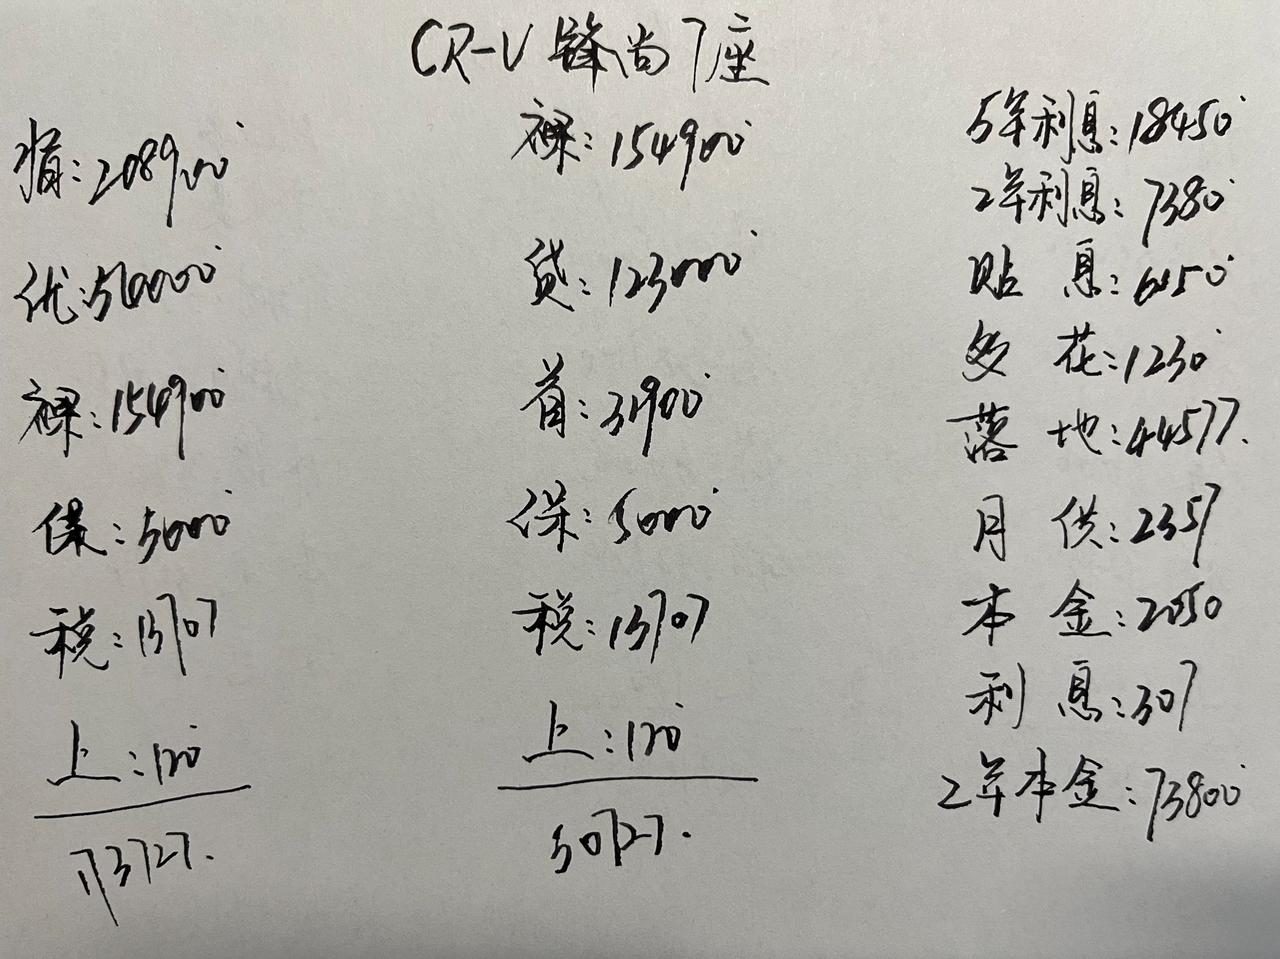 CR-V 锋尚7座
指:208900
优:54000
裸:154900
保:5000
税:13707
上:120
173727.
裸:154900
贷:123000
首:31900
保:5000
税:13707
上:120
50727.
5年利息:18450
2年利息:7380
贴 息:6150
多 花:1230
落 地:44577.
月 供:2357
本 金:2050
利 息:307
2年本金:73800